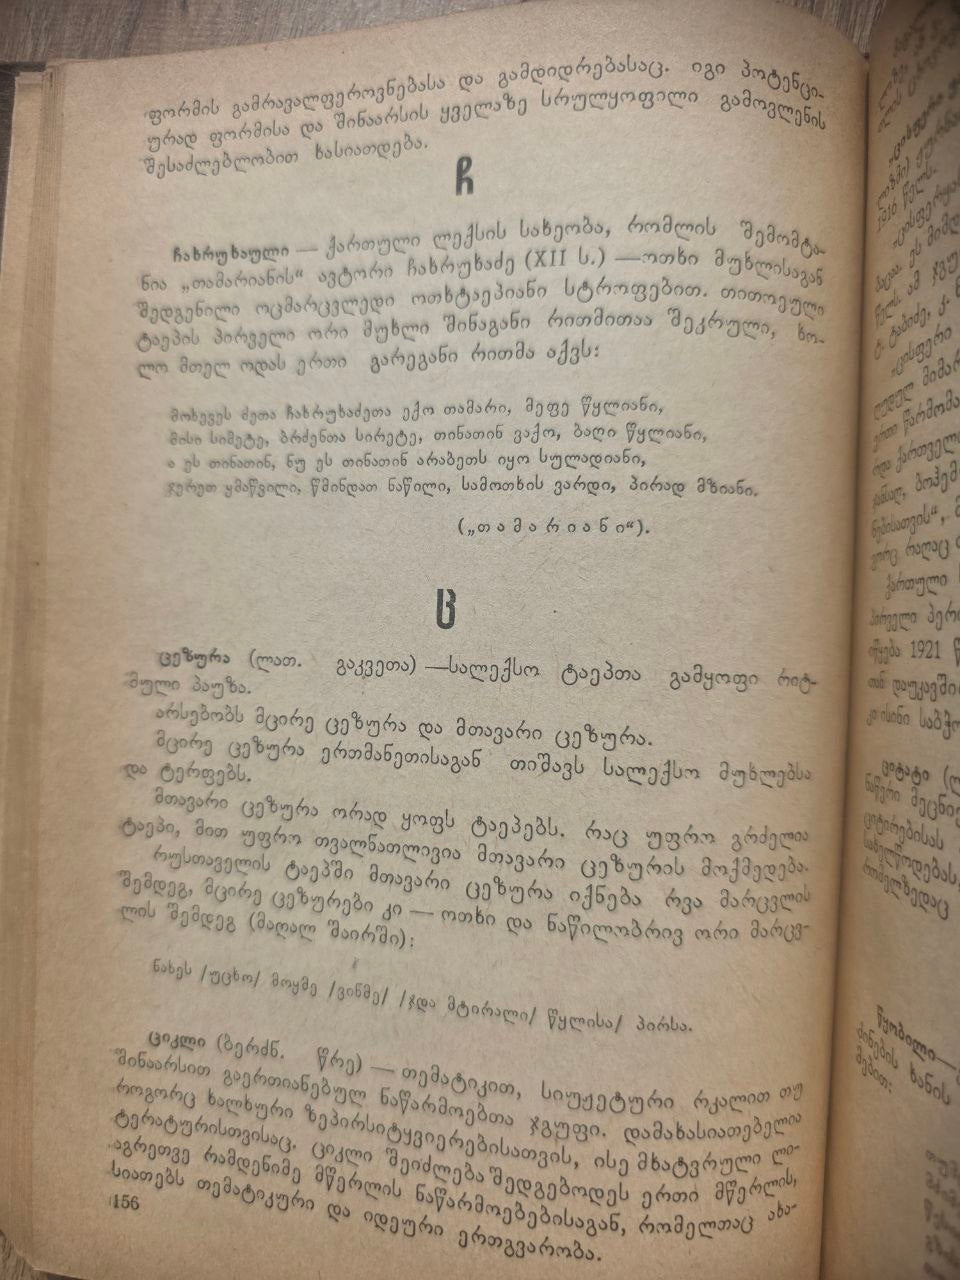 ფორმის გამრავალფეროვნებასა და გამდიდრებასაც. იგი პოტენცი-
ურად ფორმისა და შინაარსის ყველაზე სრულყოფილი გამოვლენის
შესაძლებლობით ხასიათდება.
ჩ
ჩახრუხაული — ქართული ლექსის სახეობა, რომლის შემომტა-
ნია „თამარიანის“ ავტორი ჩახრუხაძე (XII ს.) —ოთხი მუხლისაგან
შედგენილი ოცმარცვლედი ოთხტაეპიანი სტროფებით. თითოეული
ტაეპის პირველი ორი მუხლი შინაგანი რითმითაა შეკრული, ხო-
ლო მთელ ოდას ერთი გარეგანი რითმა აქვს:
მოხევეს ძეთა ჩახრუხაძეთა ექო თამარი, მეფე წყლიანი,
მისი სიმეტე, ბრძენთა სირეტე, თინათინ ვაქო, ბაღი წყლიანი,
ა ეს თინათინ, ნუ ეს თინათინ არაბეთს იყო სულადიანი,
ჯერეთ ყმაწვილი, წმინდათ ნაწილი, სამოთხის ვარდი, პირად მზიანი.
(„თამარიანი“).
ც
ცეზურა (ლათ. გაკვეთა) —სალექსო ტაეპთა გამყოფი რიტ-
მული პაუზა.
არსებობს მცირე ცეზურა და მთავარი ცეზურა.
მცირე ცეზურა ერთმანეთისაგან თიშავს სალექსო მუხლებსა
და ტერფებს.
მთავარი ცეზურა ორად ყოფს ტაეპებს. რაც უფრო გრძელია
ტაეპი, მით უფრო თვალნათლივია მთავარი ცეზურის მოქმედება.
რუსთაველის ტაეპში მთავარი ცეზურა იქნება რვა მარცვლის
შემდეგ, მცირე ცეზურები კი — ოთხი და ნაწილობრივ ორი მარცვ-
ლის შემდეგ (მაღალ შაირში):
ნახეს /უცხო/ მოყმე /ვინმე/ /ჯდა მტირალი/ წყლისა/ პირსა.
ციკლი (ბერძნ. წრე) — თემატიკით, სიუჟეტური რკალით თუ
შინაარსით გაერთიანებულ ნაწარმოებთა ჯგუფი. დამახასიათებელია
როგორც ხალხური ზეპირსიტყვიერებისათვის, ისე მხატვრული ლი-
ტერატურისთვისაც. ციკლი შეიძლება შედგებოდეს ერთი მწერლის,
აგრეთვე რამდენიმე მწერლის ნაწარმოებებისაგან, რომელთაც ახა-
სიათებს თემატიკური და იდეური ერთგვარობა.
156